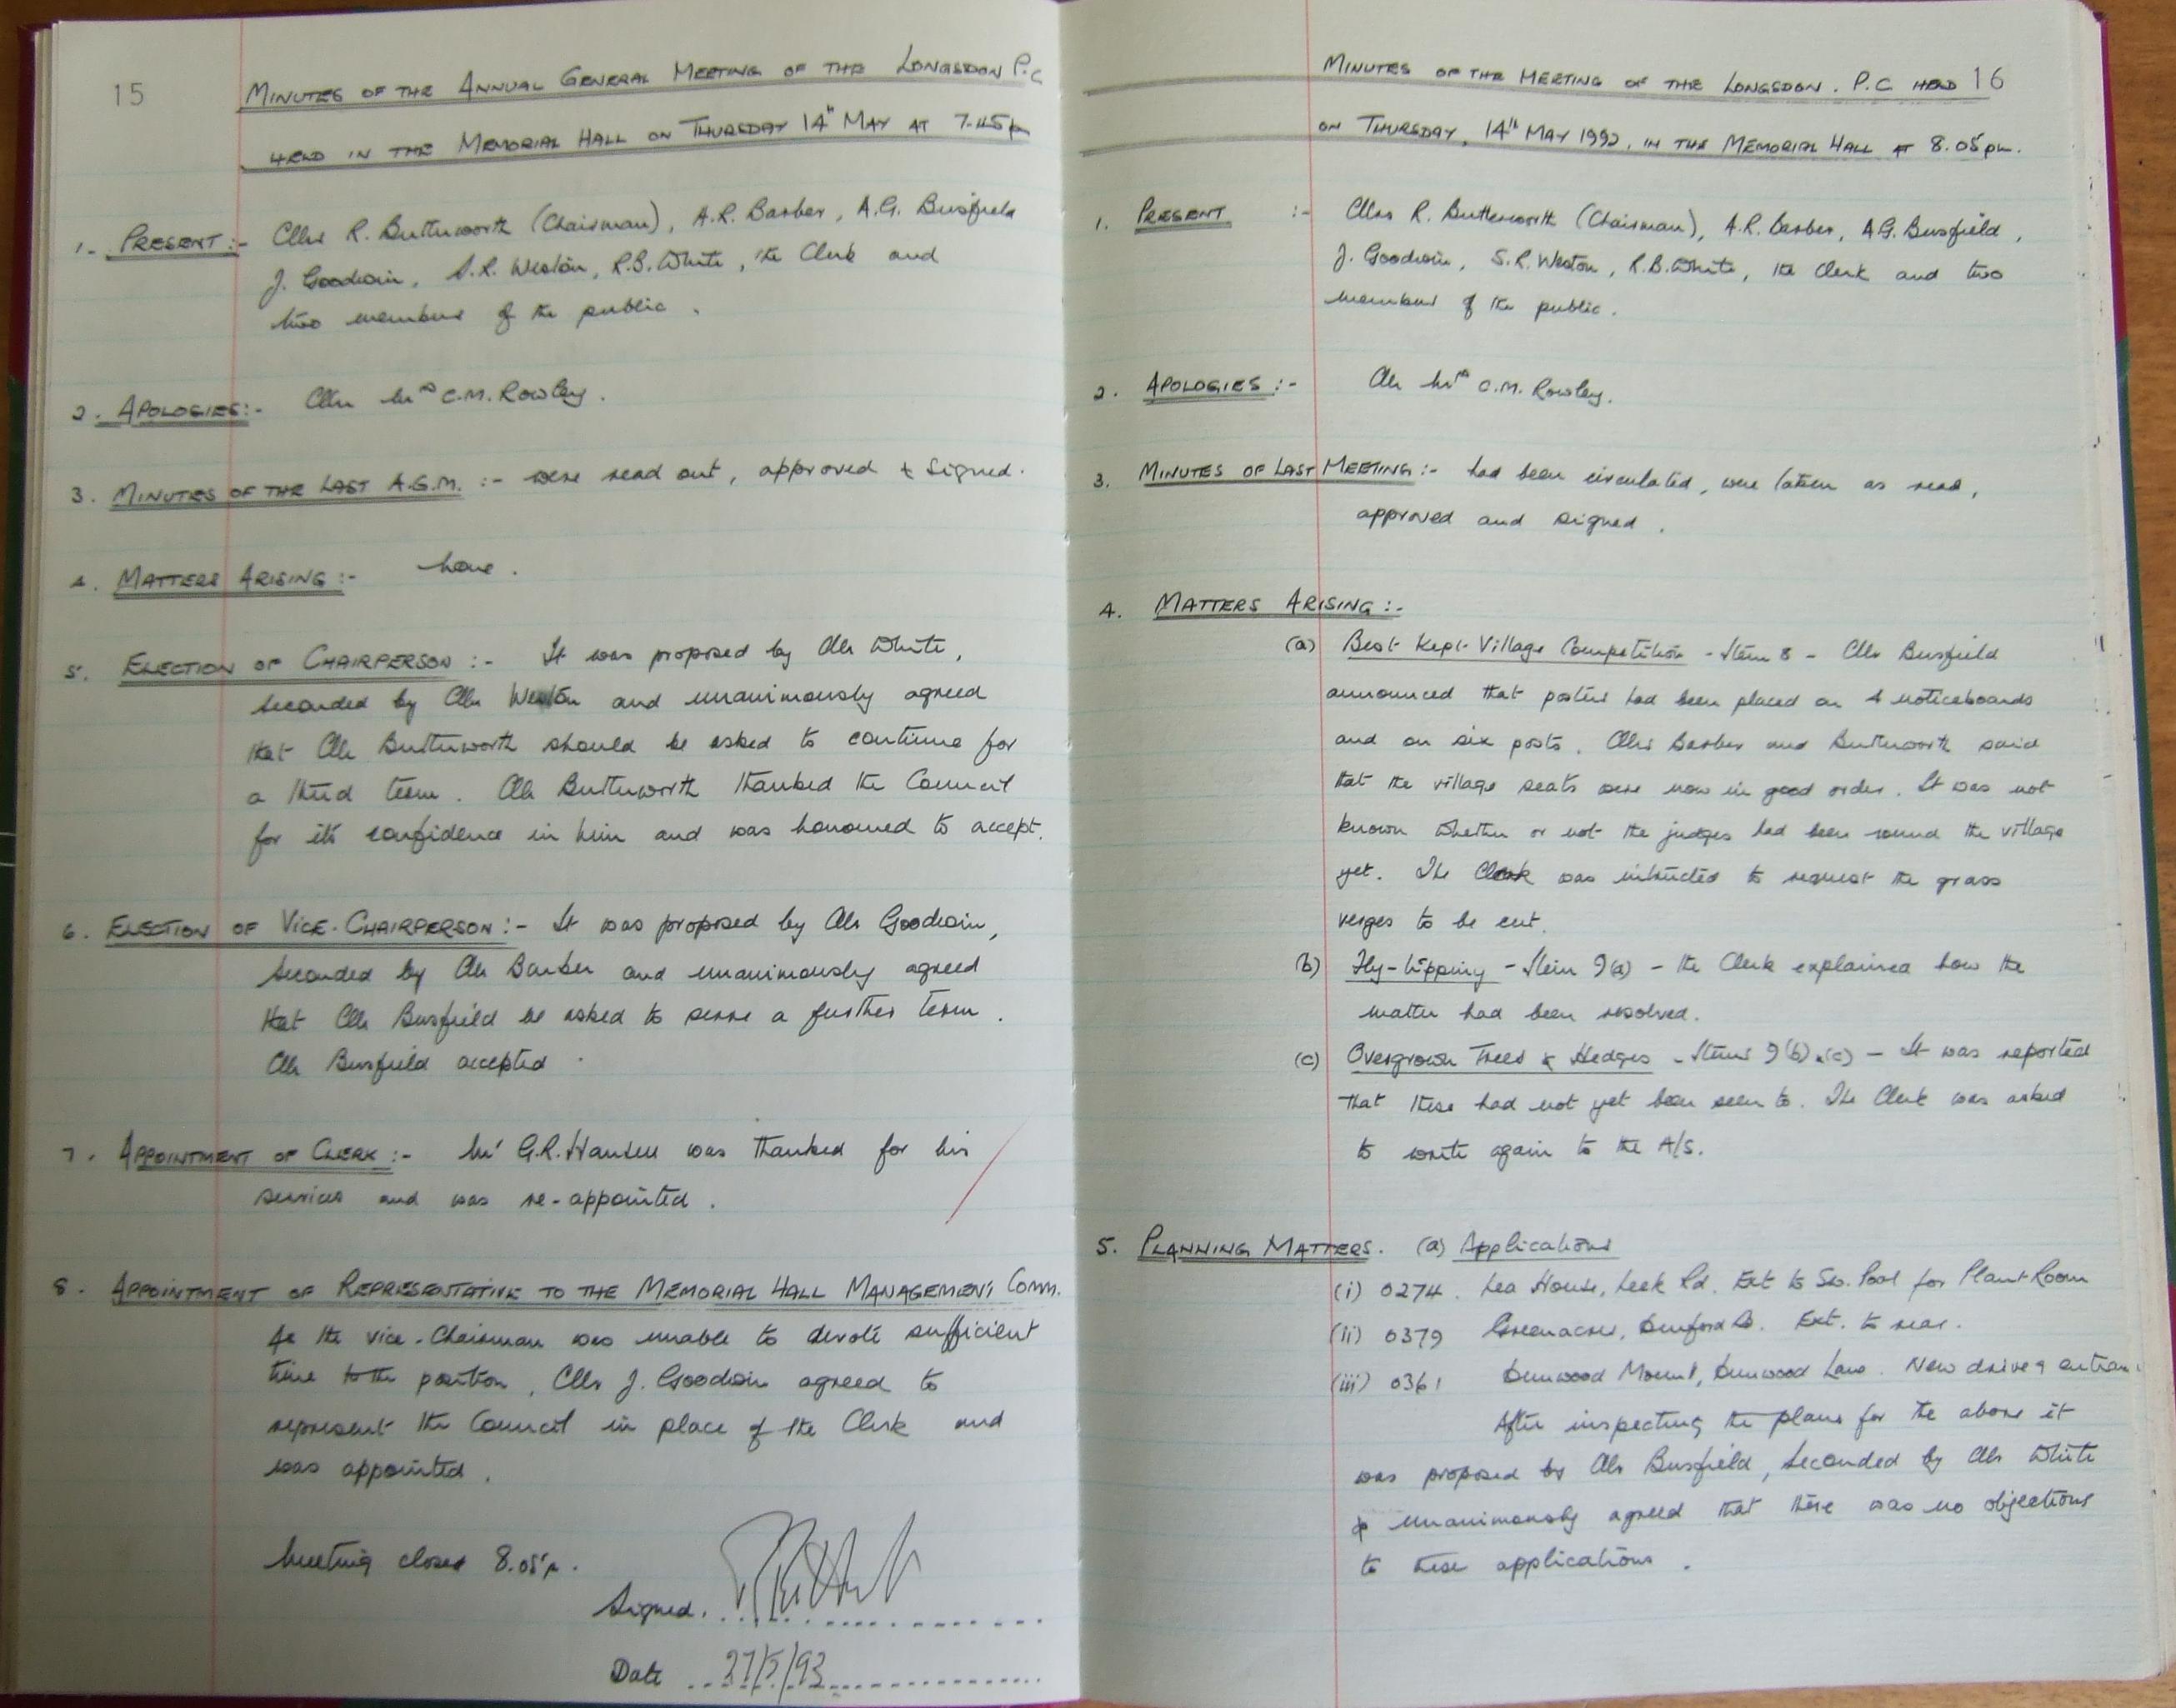 15
MINUTES OF THE ANNUAL GENERAL MEETING OF THE LONGSDON P.C
HELD IN THE MEMORIAL HALL ON THURSDAY 14th MAY AT 7.45pm
1. PRESENT:- Cllrs R. Butterworth (Chairman), A.R. Barber, A.G. Busfield
J. Goodwin, S.R. Weston, R.B. White, the Clerk and
two members of the public.
2. APOLOGIES:- Cllr Mrs C.M. Rowley.
3. MINUTES OF THE LAST A.G.M. :- were read out, approved & signed.
4. MATTERS ARISING:- None.
5. ELECTION OF CHAIRPERSON :- It was proposed by Cllr White,
seconded by Cllr Weston and unanimously agreed
that Cllr Butterworth should be asked to continue for
a third term. Cllr Butterworth thanked the Council
for its confidence in him and was honoured to accept.
6. ELECTION OF VICE-CHAIRPERSON:- It was proposed by Cllr Goodwin,
seconded by Cllr Barber and unanimously agreed
that Cllr Busfield be asked to serve a further term.
Cllr Busfield accepted.
7. APPOINTMENT OF CLERK:- Mr G.R. was thanked for his
services and was re-appointed.
8. APPOINTMENT OF REPRESENTATIVE TO THE MEMORIAL HALL MANAGEMENT COMM.
As the vice-Chairman was unable to devote sufficient
time to the position, Cllr J. Goodwin agreed to
represent the Council in place of the Clerk and
was appointed.
Meeting closed 8.05p.
Signed.
Date 27/5/93
MINUTES OF THE MEETING OF THE LONGSDON. P.C. HELD 16
ON THURSDAY, 14th MAY 1992, IN THE MEMORIAL HALL AT 8.05pm.
1. PRESENT :- Cllrs R. Butterworth (Chairman), A.R. Barber, A.G. Busfield,
J. Goodwin, S.R. Weston, R.B. White, the Clerk and two
members of the public.
2. APOLOGIES:- Cllr Mrs C.M. Rowley.
3. MINUTES OF LAST MEETING:- had been circulated, were taken as read,
approved and signed.
4. MATTERS ARISING:-
(a) Best Kept Village Competition - Item 8 - Cllr Busfield
announced that posters had been placed on 4 noticeboards
and on six posts. Cllrs Barber and Butterworth said
that the village seats were now in good order. It was not
known whether or not the judges had been round the village
yet. The Clerk was instructed to request the grass
verges to be cut.
(b) Fly-tipping - Item 9(a) - the Clerk explained how the
matter had been resolved.
(c) Overgrown Trees & Hedges - Items 9(b)&(c) - It was reported
that these had not yet been seen to. The Clerk was asked
to write again to the A/S.
5. PLANNING MATTERS. (a) Applications
(i) 0274. Lea House, Leek Rd. Ext to Sw. Pool for Plant Room
(ii) 0379 Greenacres, Ext. to rear.
(iii) 0361 Dunwood Mount, Dunwood Lane. New drive &
After inspecting the plans for the above it
was proposed by Cllr Busfield, seconded by Cllr White
& unanimously agreed that there was no objections
to these applications.